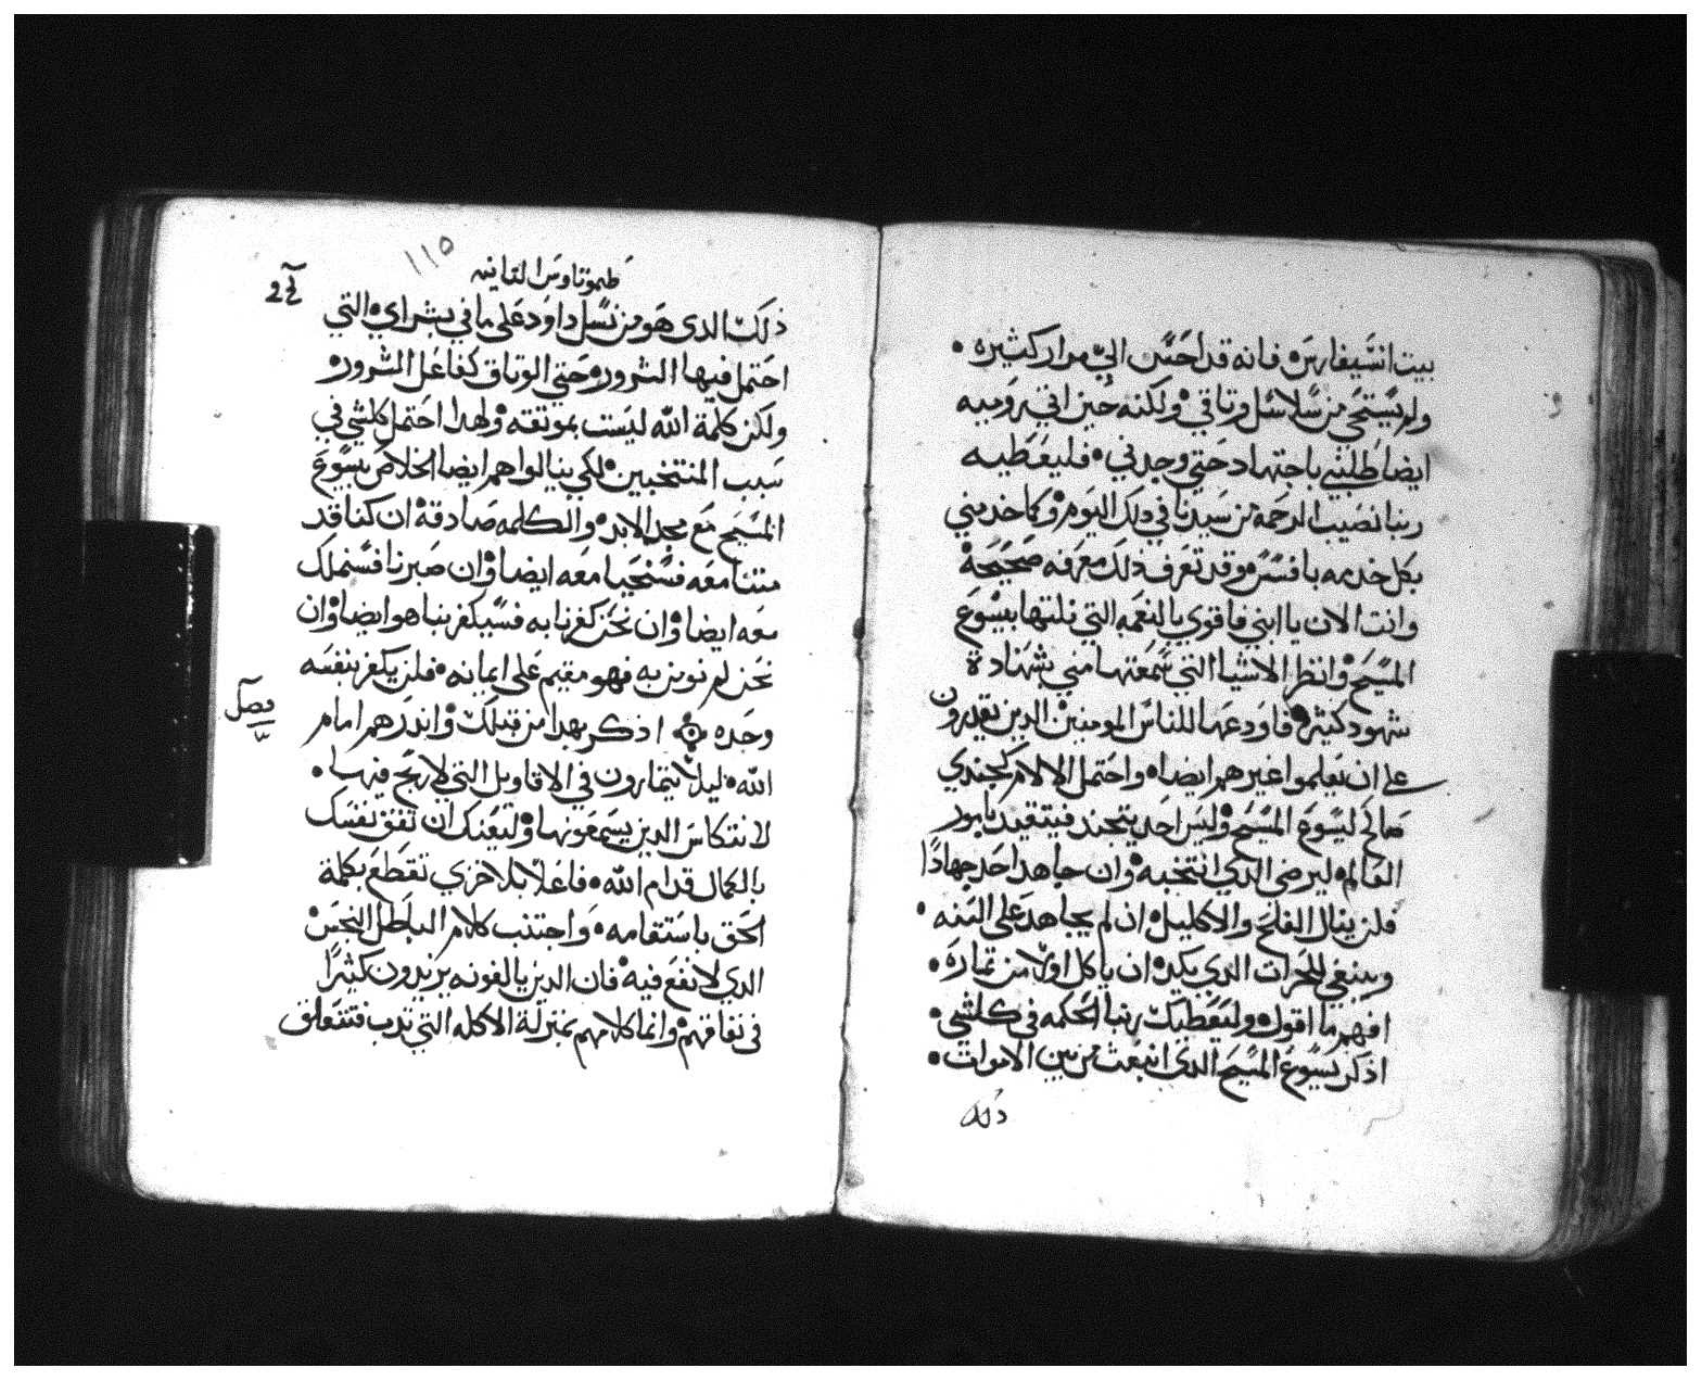 بيت انسيفارس فانه قد احسن الي مرار كثيره
ولم يستحي من سلاسل وثاقي ولكنه حين اتي روميه
ايضا طلبني باجتهاد حتي وجدني فليعطيه
ربنا نصيب الرحمه من سيدنا في ذلك اليوم وكما خدمني
بكل خدمه بافسس وقد تعرف ذلك معرفه صحيحة
وانت الان يا ابني فاقوي بالنعمه التي نلتها بيسوع
المسيح وانظر الاشيا التي سمعتها مني بشهادة
شهود كثيره فاودعها للناس المومنين الدين يقدرون
علي ان يعلموا غيرهم ايضا واحتمل الالام كجندي
صالح ليسوع المسيح وليس احد يتجند فيتقيد بامور
العالم ليرضي الدي انتخبه وان جاهد احد جهادًا
فلن ينال الفلح والاكليل ان لم يجاهد علي السنه
وينبغي للحراث الدي يكد ان ياكل اولا من تماره
افهم ما اقول وليعطيك ربنا الحكمه في كلشي
اذكر يسوع المسيح الدي انبعث من بين الاموات
ذلك
طيموتاوس التانيه
١١٥
ذلك الدي هو من نسل داود علي ما في بشراي التي
احتمل فيها الشرور حتي الوتاق كفاعل الشرور
ولكن كلمة الله ليست بموتقه ولهدا احتمل كلشي في
سبب المنتخبين لكي ينالوا هم ايضا الخلاص بيسوع
المسيح مع مجد الابد والكلمه صادقه ان كنا قد
متنا معه فسنحيا معه ايضا وان صبرنا فسنملك
معه ايضا وان نحن كفرنا به فسيكفر بنا هو ايضا وان
نحن لم نومن به فهو مقيم علي ايمانه فلن يكفر بنفسه
وحده اذكر بهدا من قبلك واندرهم امام
فصل
الله ليلا يتمارون في الاقاويل التي لا ربح فيها
لانتكاس الدين يسمعونها وليعنك ان تقف نفسك
بالكمال قدام الله فاعلا بلا خزي تقطع بكلمة
الحق باستقامه واجتنب كلام الباطل النجس
الدي لا نفع فيه فان الدين يالفونه يزيدون كثيرًا
في نفاقهم وانما كلامهم بمنزلة الاكله التي تدب فتتعلق